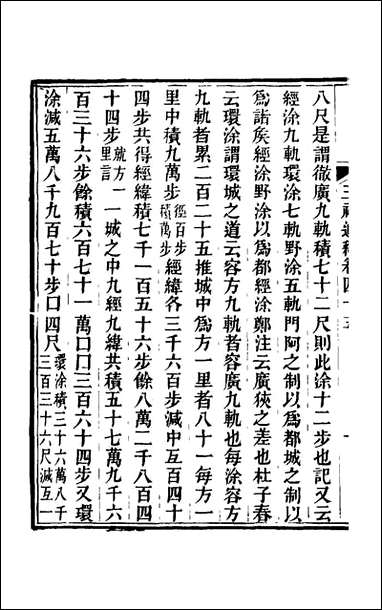 八尺是謂徹廣九軌積七十二尺則此涂十二步也記又云
經涂九軌環涂七軌野涂五軌門阿之制以爲都城之制以
爲諸矦經涂野涂以爲都經涂鄭注云廣狹之差也杜子春
云環涂謂環城之道云容方九軌者容廣九軌也每涂容方
九軌者累二百二十五推城中爲方一里者八十一每方一
里中積九萬步徑百步積萬步經緯各三千六百步減中互百四十
四步共得經緯積七千一百五十六步餘八萬二千八百四
十四步就方里言一一城之中九經九緯共積五十七萬九千六
百三十六步餘積六百七十一萬口口三百六十四步又環
涂減五萬八千九百七十步口四尺環涂積三十六萬八千三百三十六尺減互一